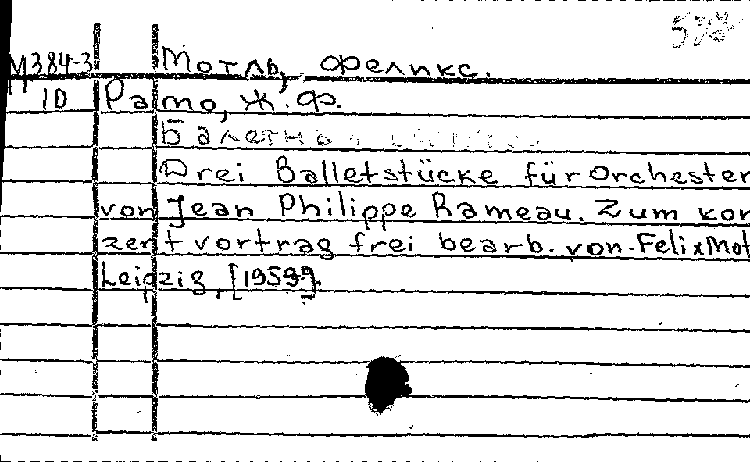 M384-3 Мотль, Феликс.
10 Рамо, Ж.Ф.
Балетная
Drei Balletstücke für Orchester
von Jean Philippe Rameau. Zum kon
zertvortrag frei bearb. von Felix Mot
Leipzig, [1959?].